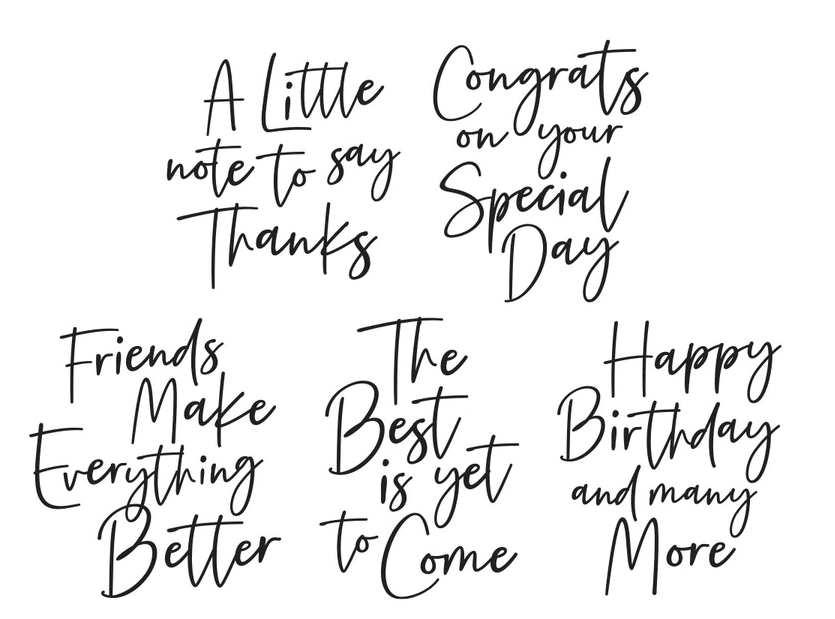 A Little
note to say
Thanks
Congrats
on your
Special
Day
Friends
Make
Everything
Better
The
Best
is yet
to Come
Happy
Birthday
and many
More